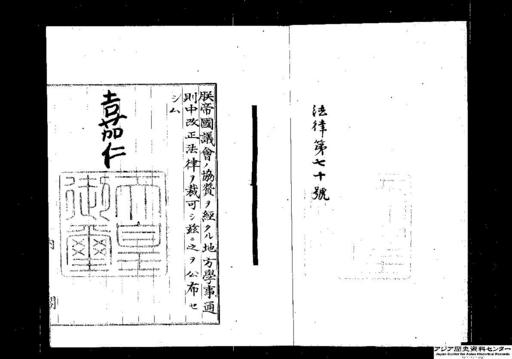 法律第七十號
朕帝國議會ノ協贊ヲ經タル地方學事通
則中改正法律ヲ裁可シ茲ニ之ヲ公布セ
シム
嘉仁
天皇
御璽
内閣
アジア歴史資料センター
Japan Center for Asian Historical Records